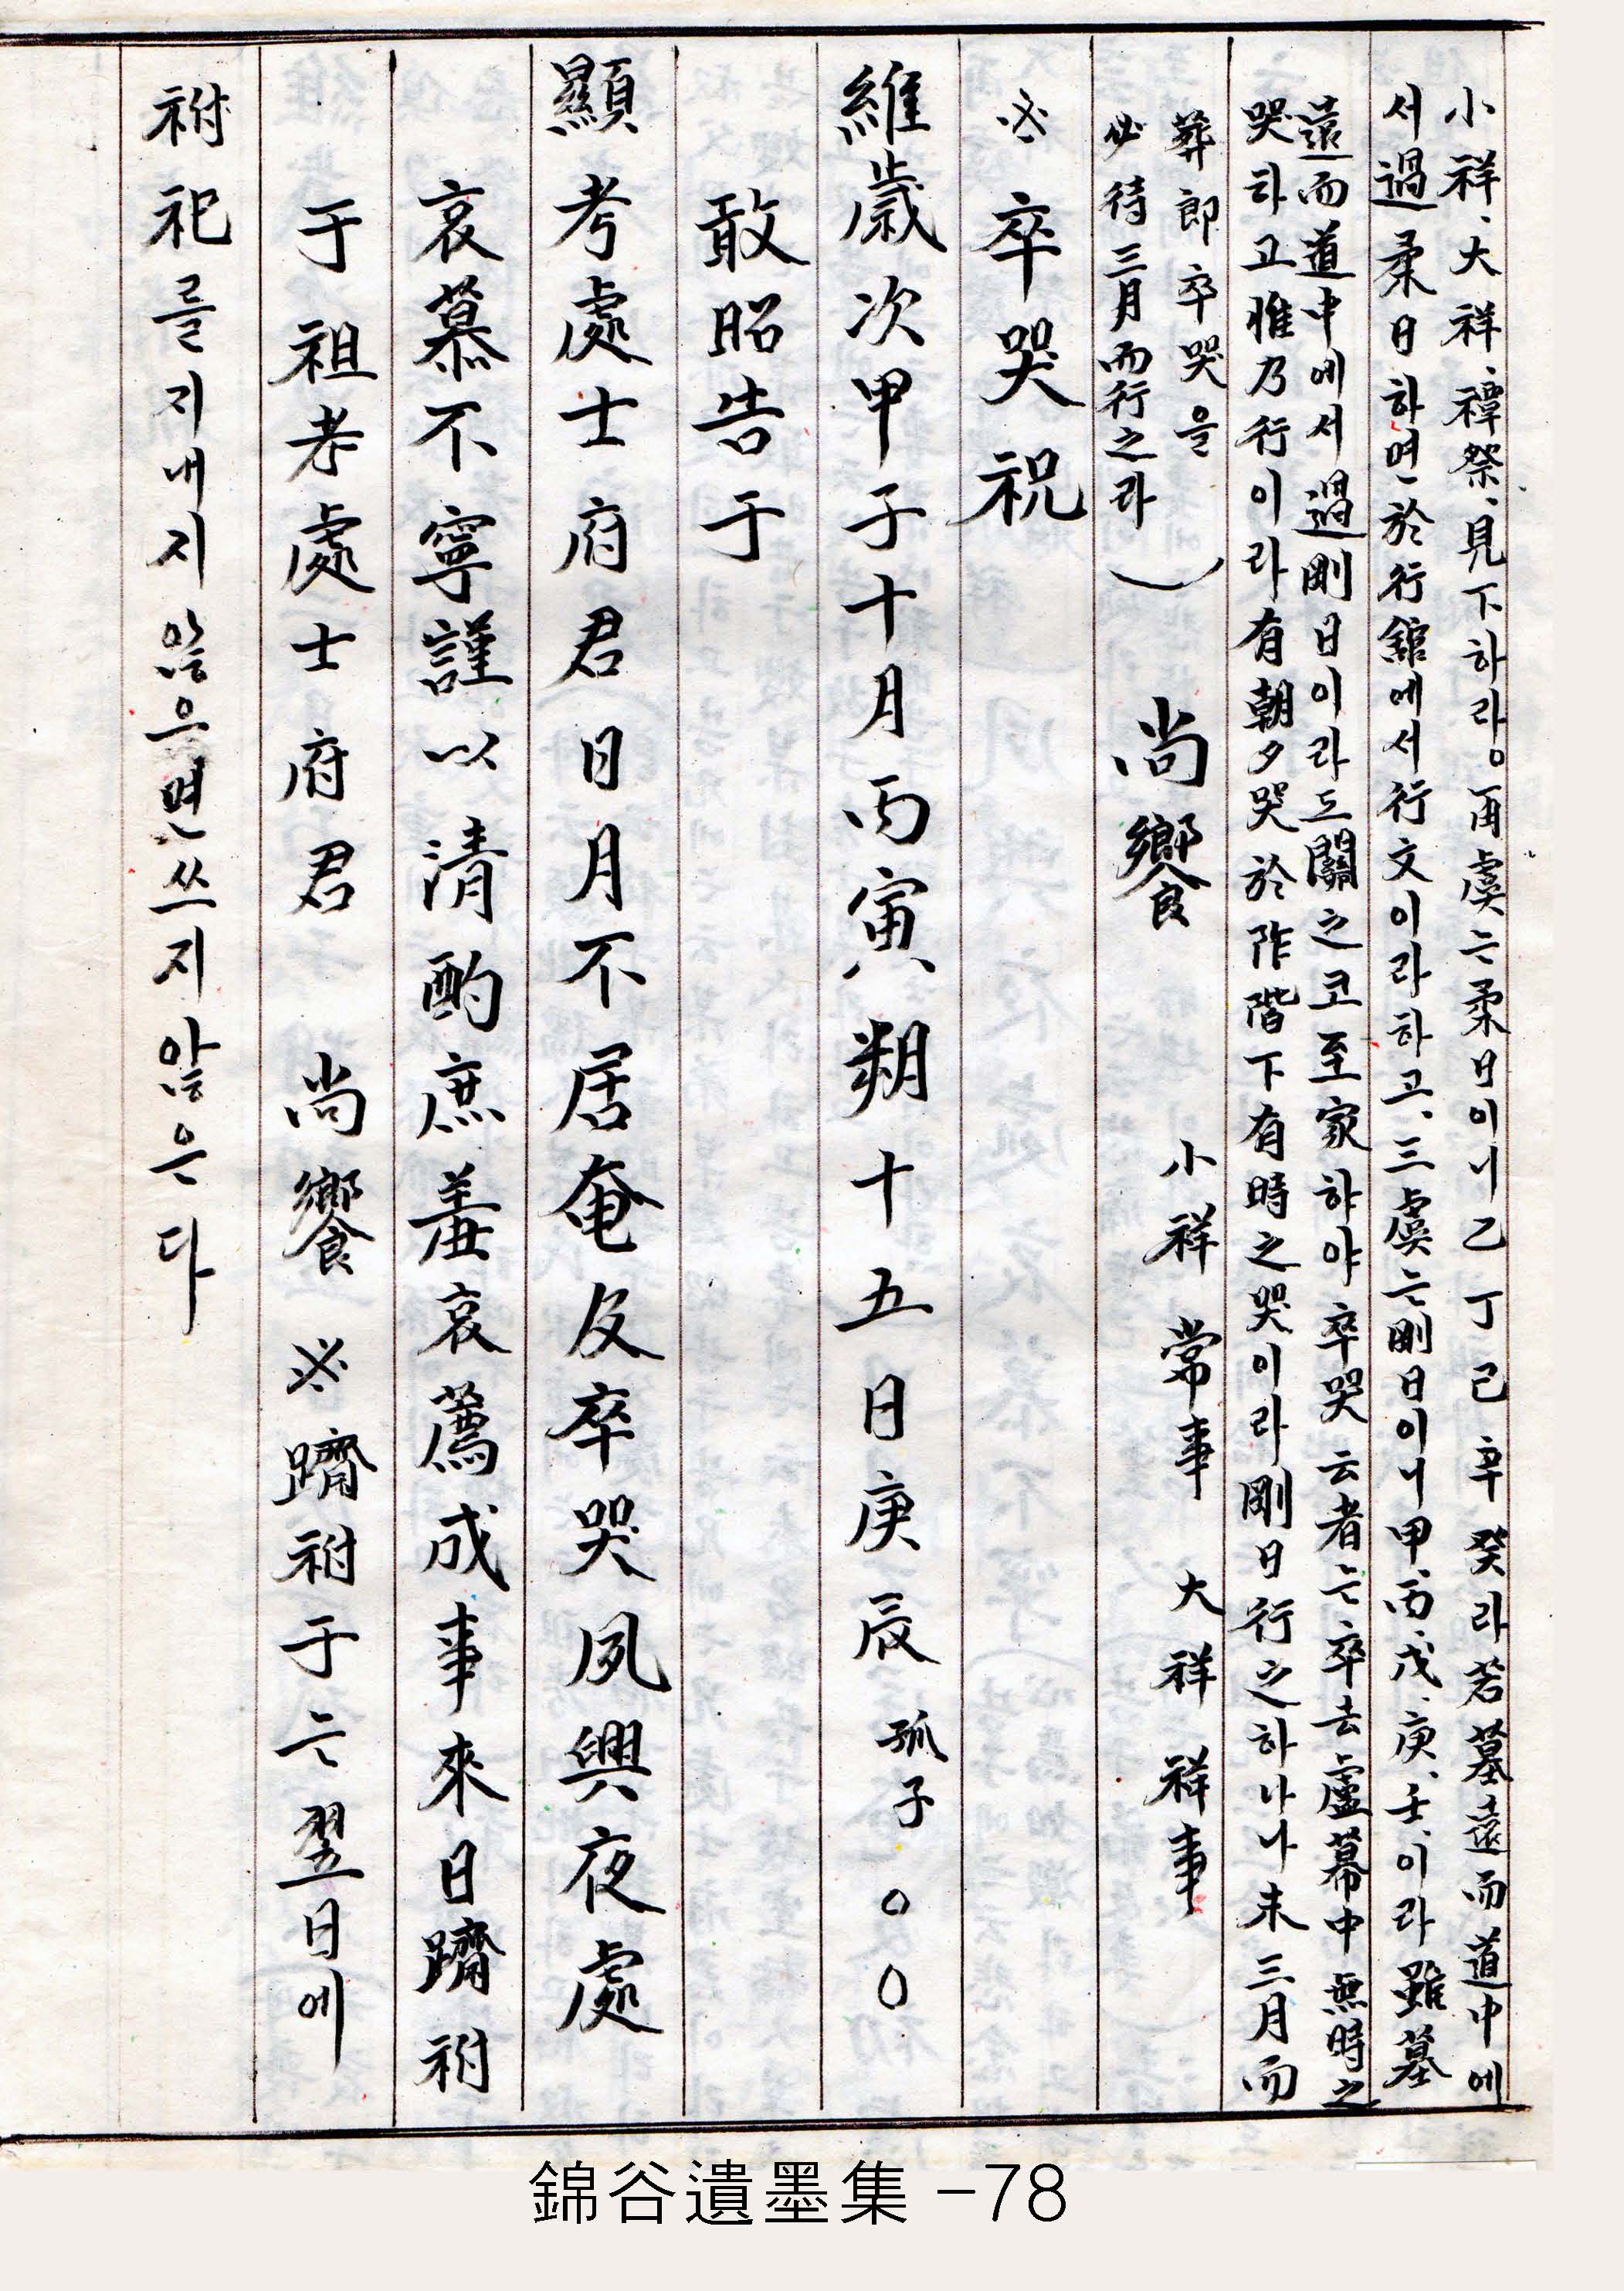 小祥、大祥、禫祭、見下하라。再虞는柔日이니乙丁己辛癸라若墓遠而道中에
서過柔日하면於行舘에서行文이라하고、三虞는剛日이니甲、丙、戊、庚、壬、이라雖墓
遠而道中에서過剛日이라도關之코至家하야卒哭云者는卒去廬幕中無時之
哭하고惟乃行이라有朝夕哭於阼階下有時之哭이라剛日行之하나니未三月而
葬郎卒哭을
必待三月而行之라) 尚饗 小祥常事 大祥祥事
※卒哭祝
維歲次甲子十月丙寅朔十五日庚辰孤子○○
敢昭告于
顯考處士府君日月不居奄及卒哭夙興夜處
哀慕不寧謹以清酌庶羞哀薦成事來日躋祔
于祖考處士府君 尚饗 ※躋祔于는翌日에
祔祀를지내지않으면쓰지않은다
錦谷遺墨集 -78